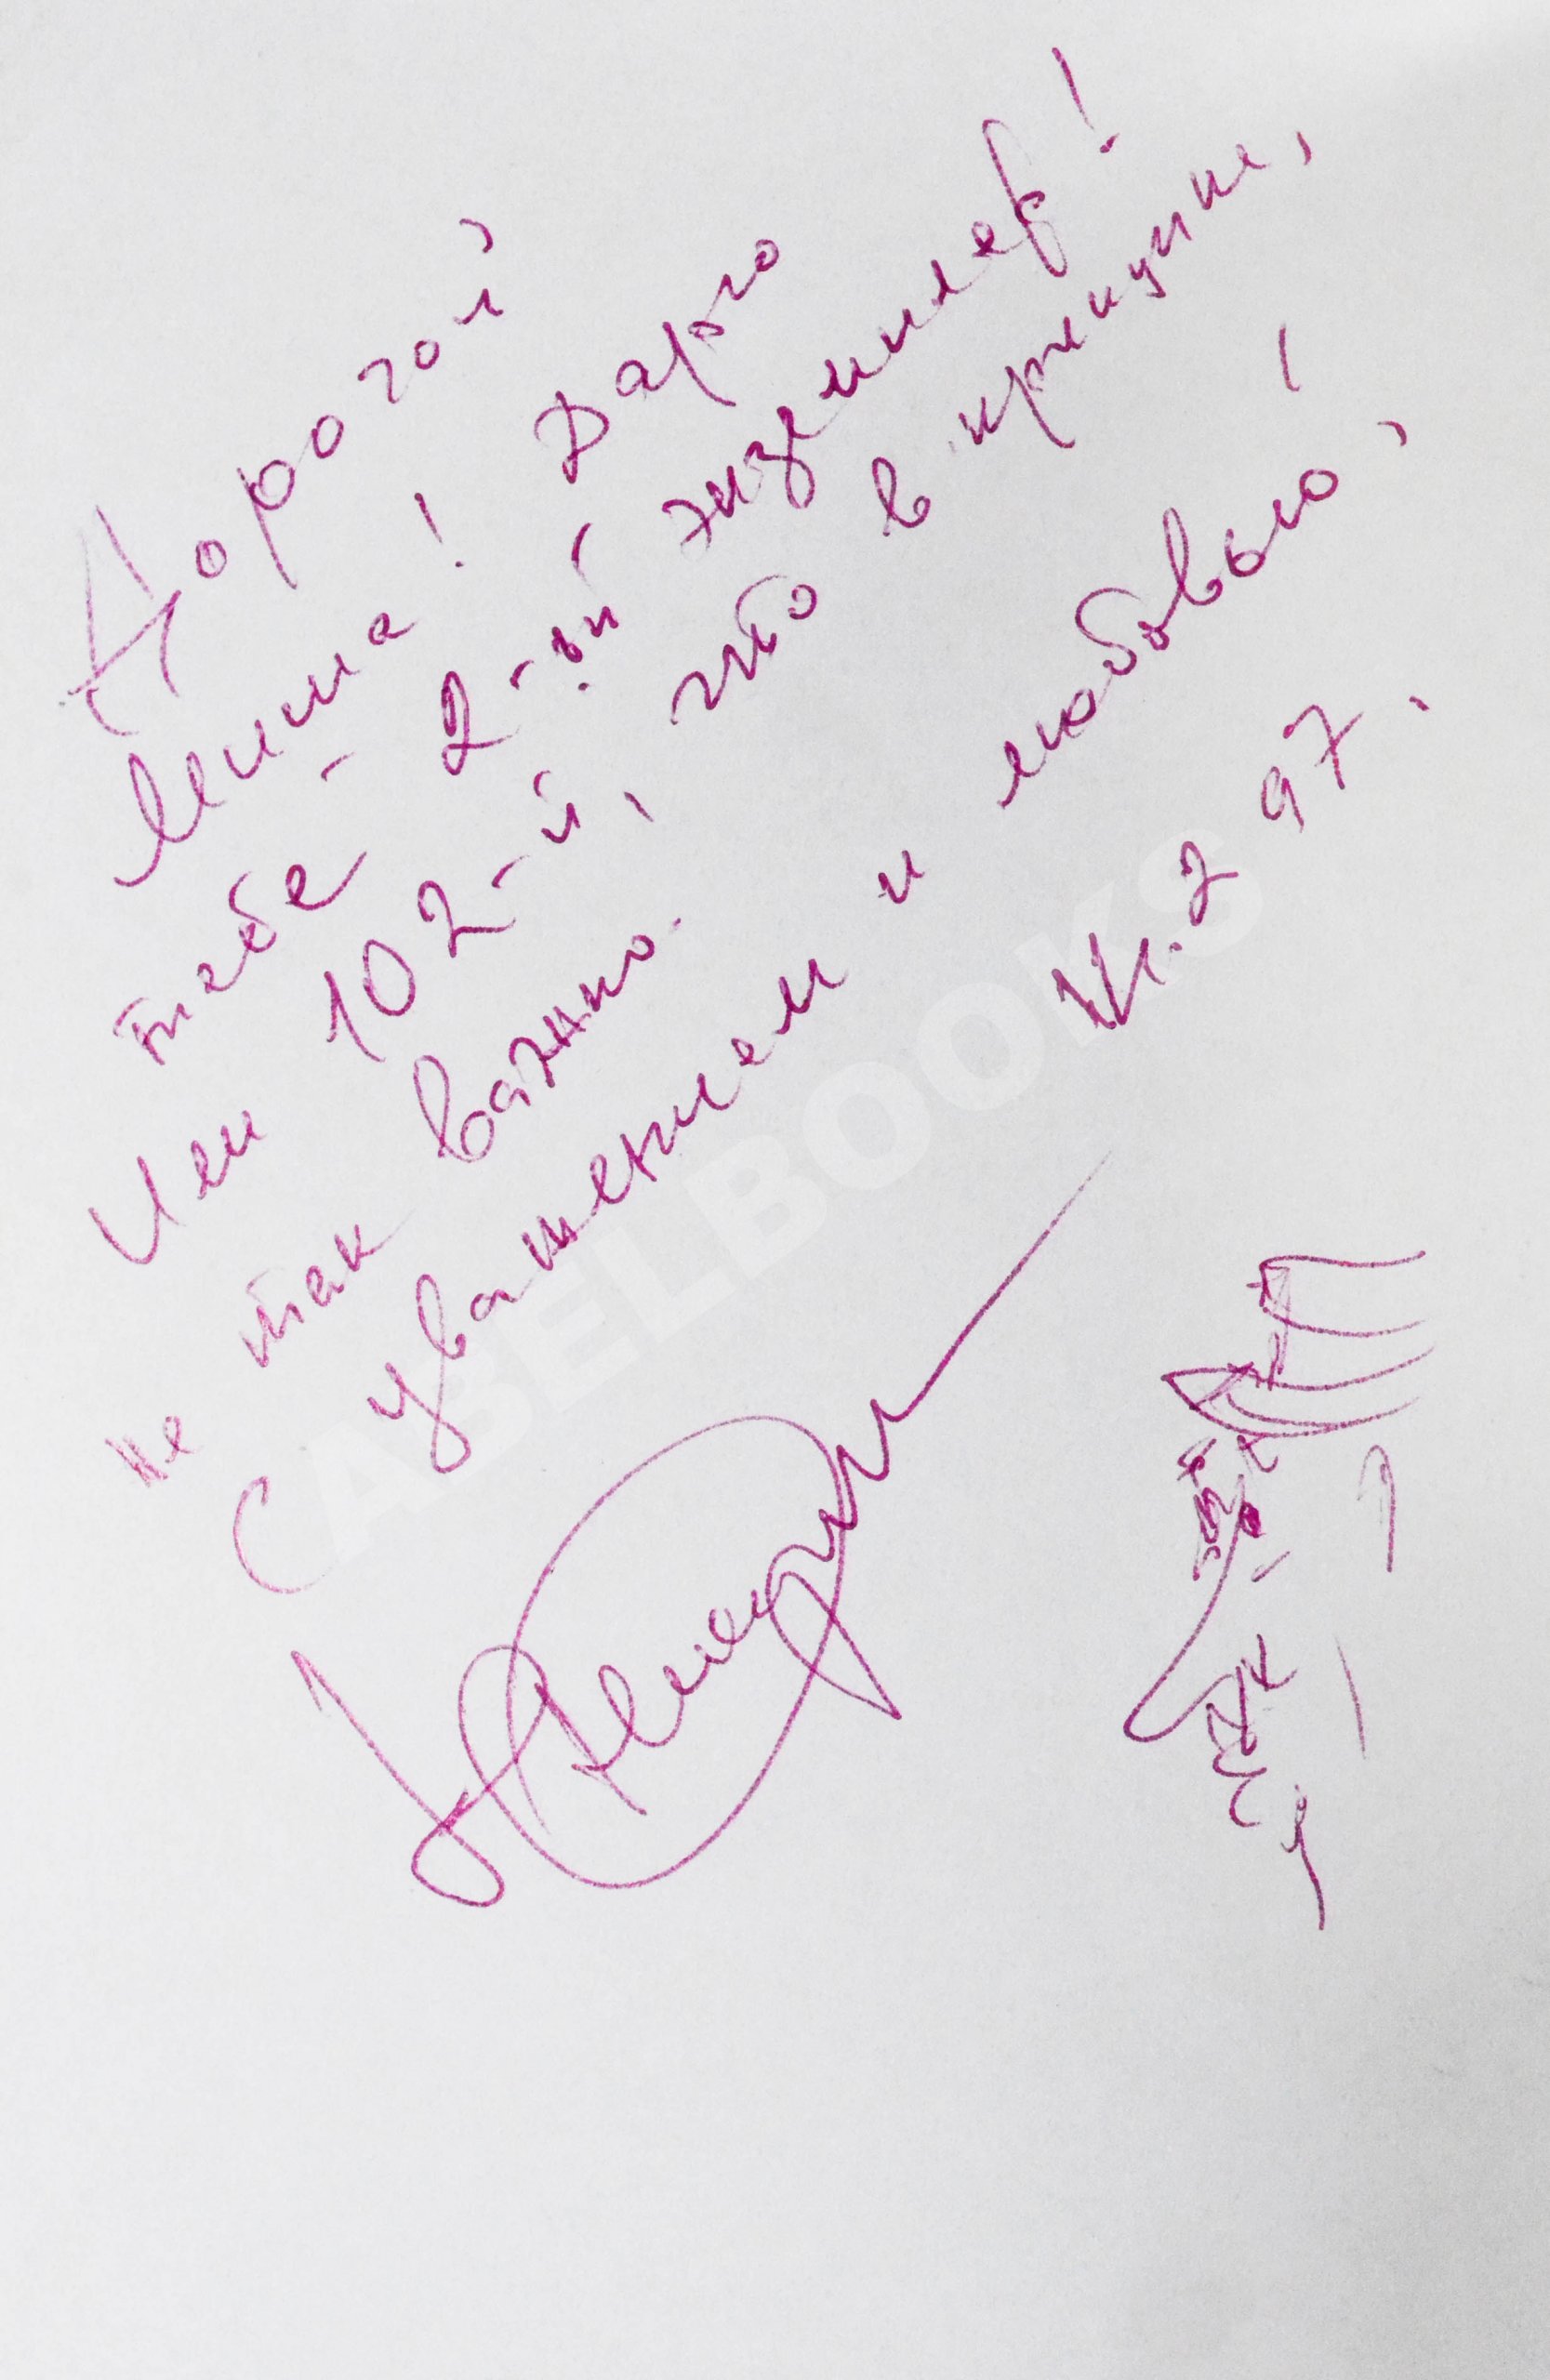 Дорогой
Миша! Дарю
тебе 2-ой экземпляр!
Или 102-й, что в принципе,
не так важно.
С уважением и любовью,
97.
CABELBOOKS